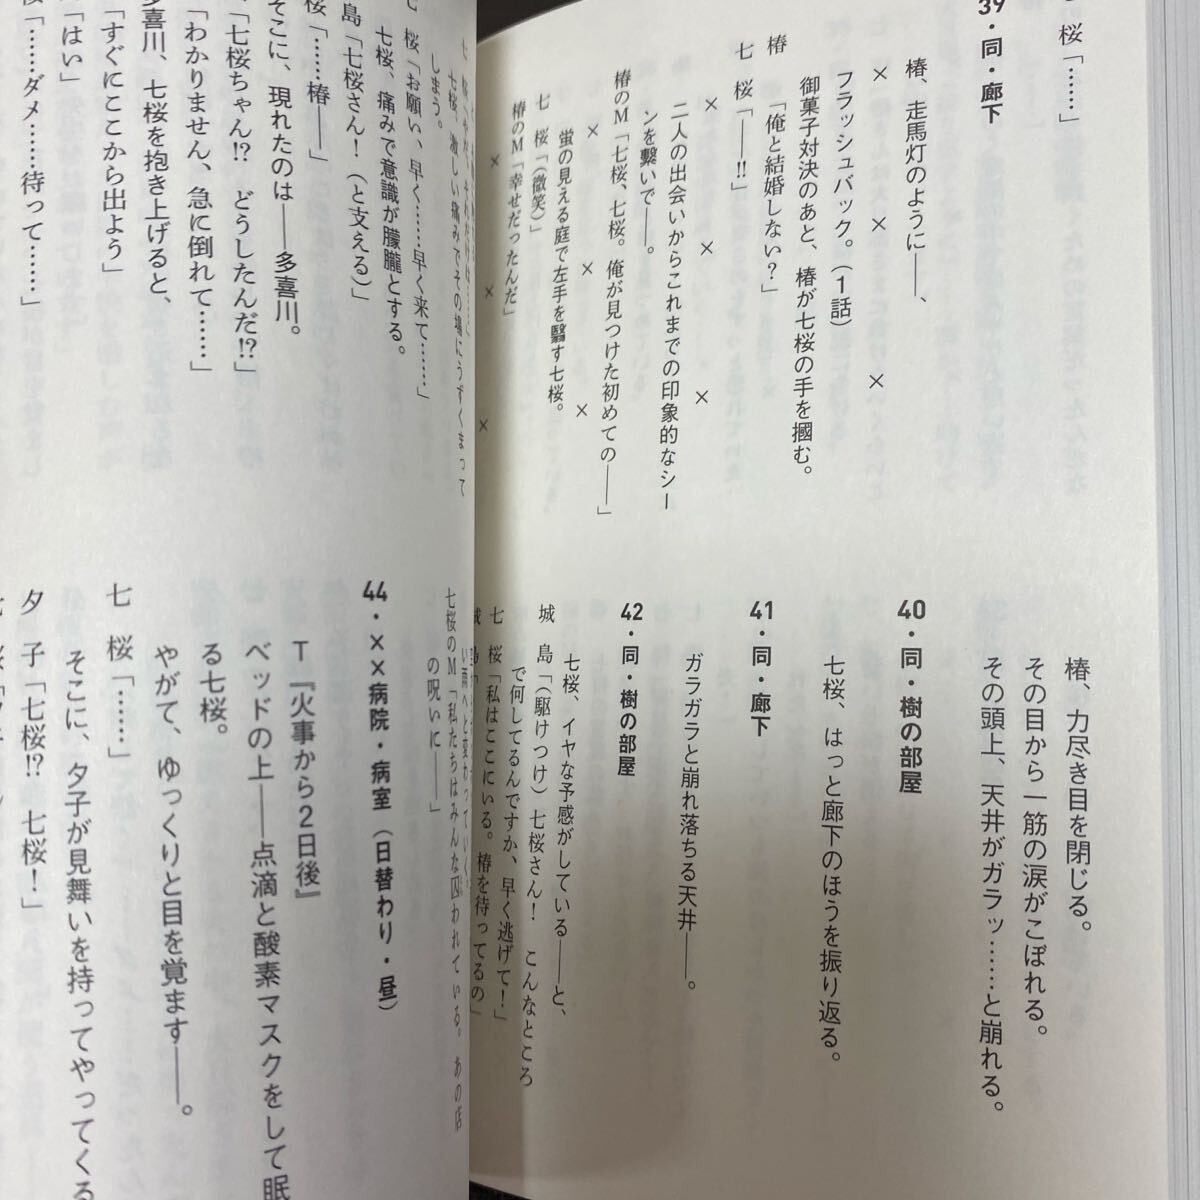 桜「……」
39・同・廊下
椿、走馬灯のように――、
×　×　×
フラッシュバック。(1話)
御菓子対決のあと、椿が七桜の手を摑む。
椿　「俺と結婚しない?」
七　桜「――!!」
×　×　×
二人の出会いからこれまでの印象的なシー
ンを繫いで――。
椿のM「七桜、七桜。俺が見つけた初めての――」
×　×　×
蛍の見える庭で左手を翳す七桜。
七　桜「(微笑)」
椿のM「幸せだったんだ」
×　×　×
椿、力尽き目を閉じる。
その目から一筋の涙がこぼれる。
その頭上、天井がガラッ……と崩れる。
40・同・樹の部屋
七桜、はっと廊下のほうを振り返る。
41・同・廊下
ガラガラと崩れ落ちる天井――。
42・同・樹の部屋
七桜、イヤな予感がしている――と、
城　島「(駆けつけ)七桜さん!　こんなところ
で何してるんですか、早く逃げて!」
七　桜「私はここにいる。椿を待ってるの」
七桜、激しい痛みでその場にうずくまって
しまう。
七　桜「お願い、早く……早く来て……」
七桜、痛みで意識が朦朧とする。
島「七桜さん!(と支える)」
桜「……椿――」
そこに、現れたのは――多喜川。
「七桜ちゃん!?　どうしたんだ!?」
「わかりません、急に倒れて……」
多喜川、七桜を抱き上げると、
「すぐにここから出よう」
「はい」
桜「……ダメ……待って……」
い雨へと変わっていく。
七桜のM「私たちはみんな囚われている。あの店
の呪いに――」
44・××病院・病室(日替わり・昼)
T『火事から2日後』
ベッドの上――点滴と酸素マスクをして眠
る七桜。
やがて、ゆっくりと目を覚ます――。
七　桜「……」
そこに、夕子が見舞いを持ってやってくる
夕　子「七桜!?　七桜!」